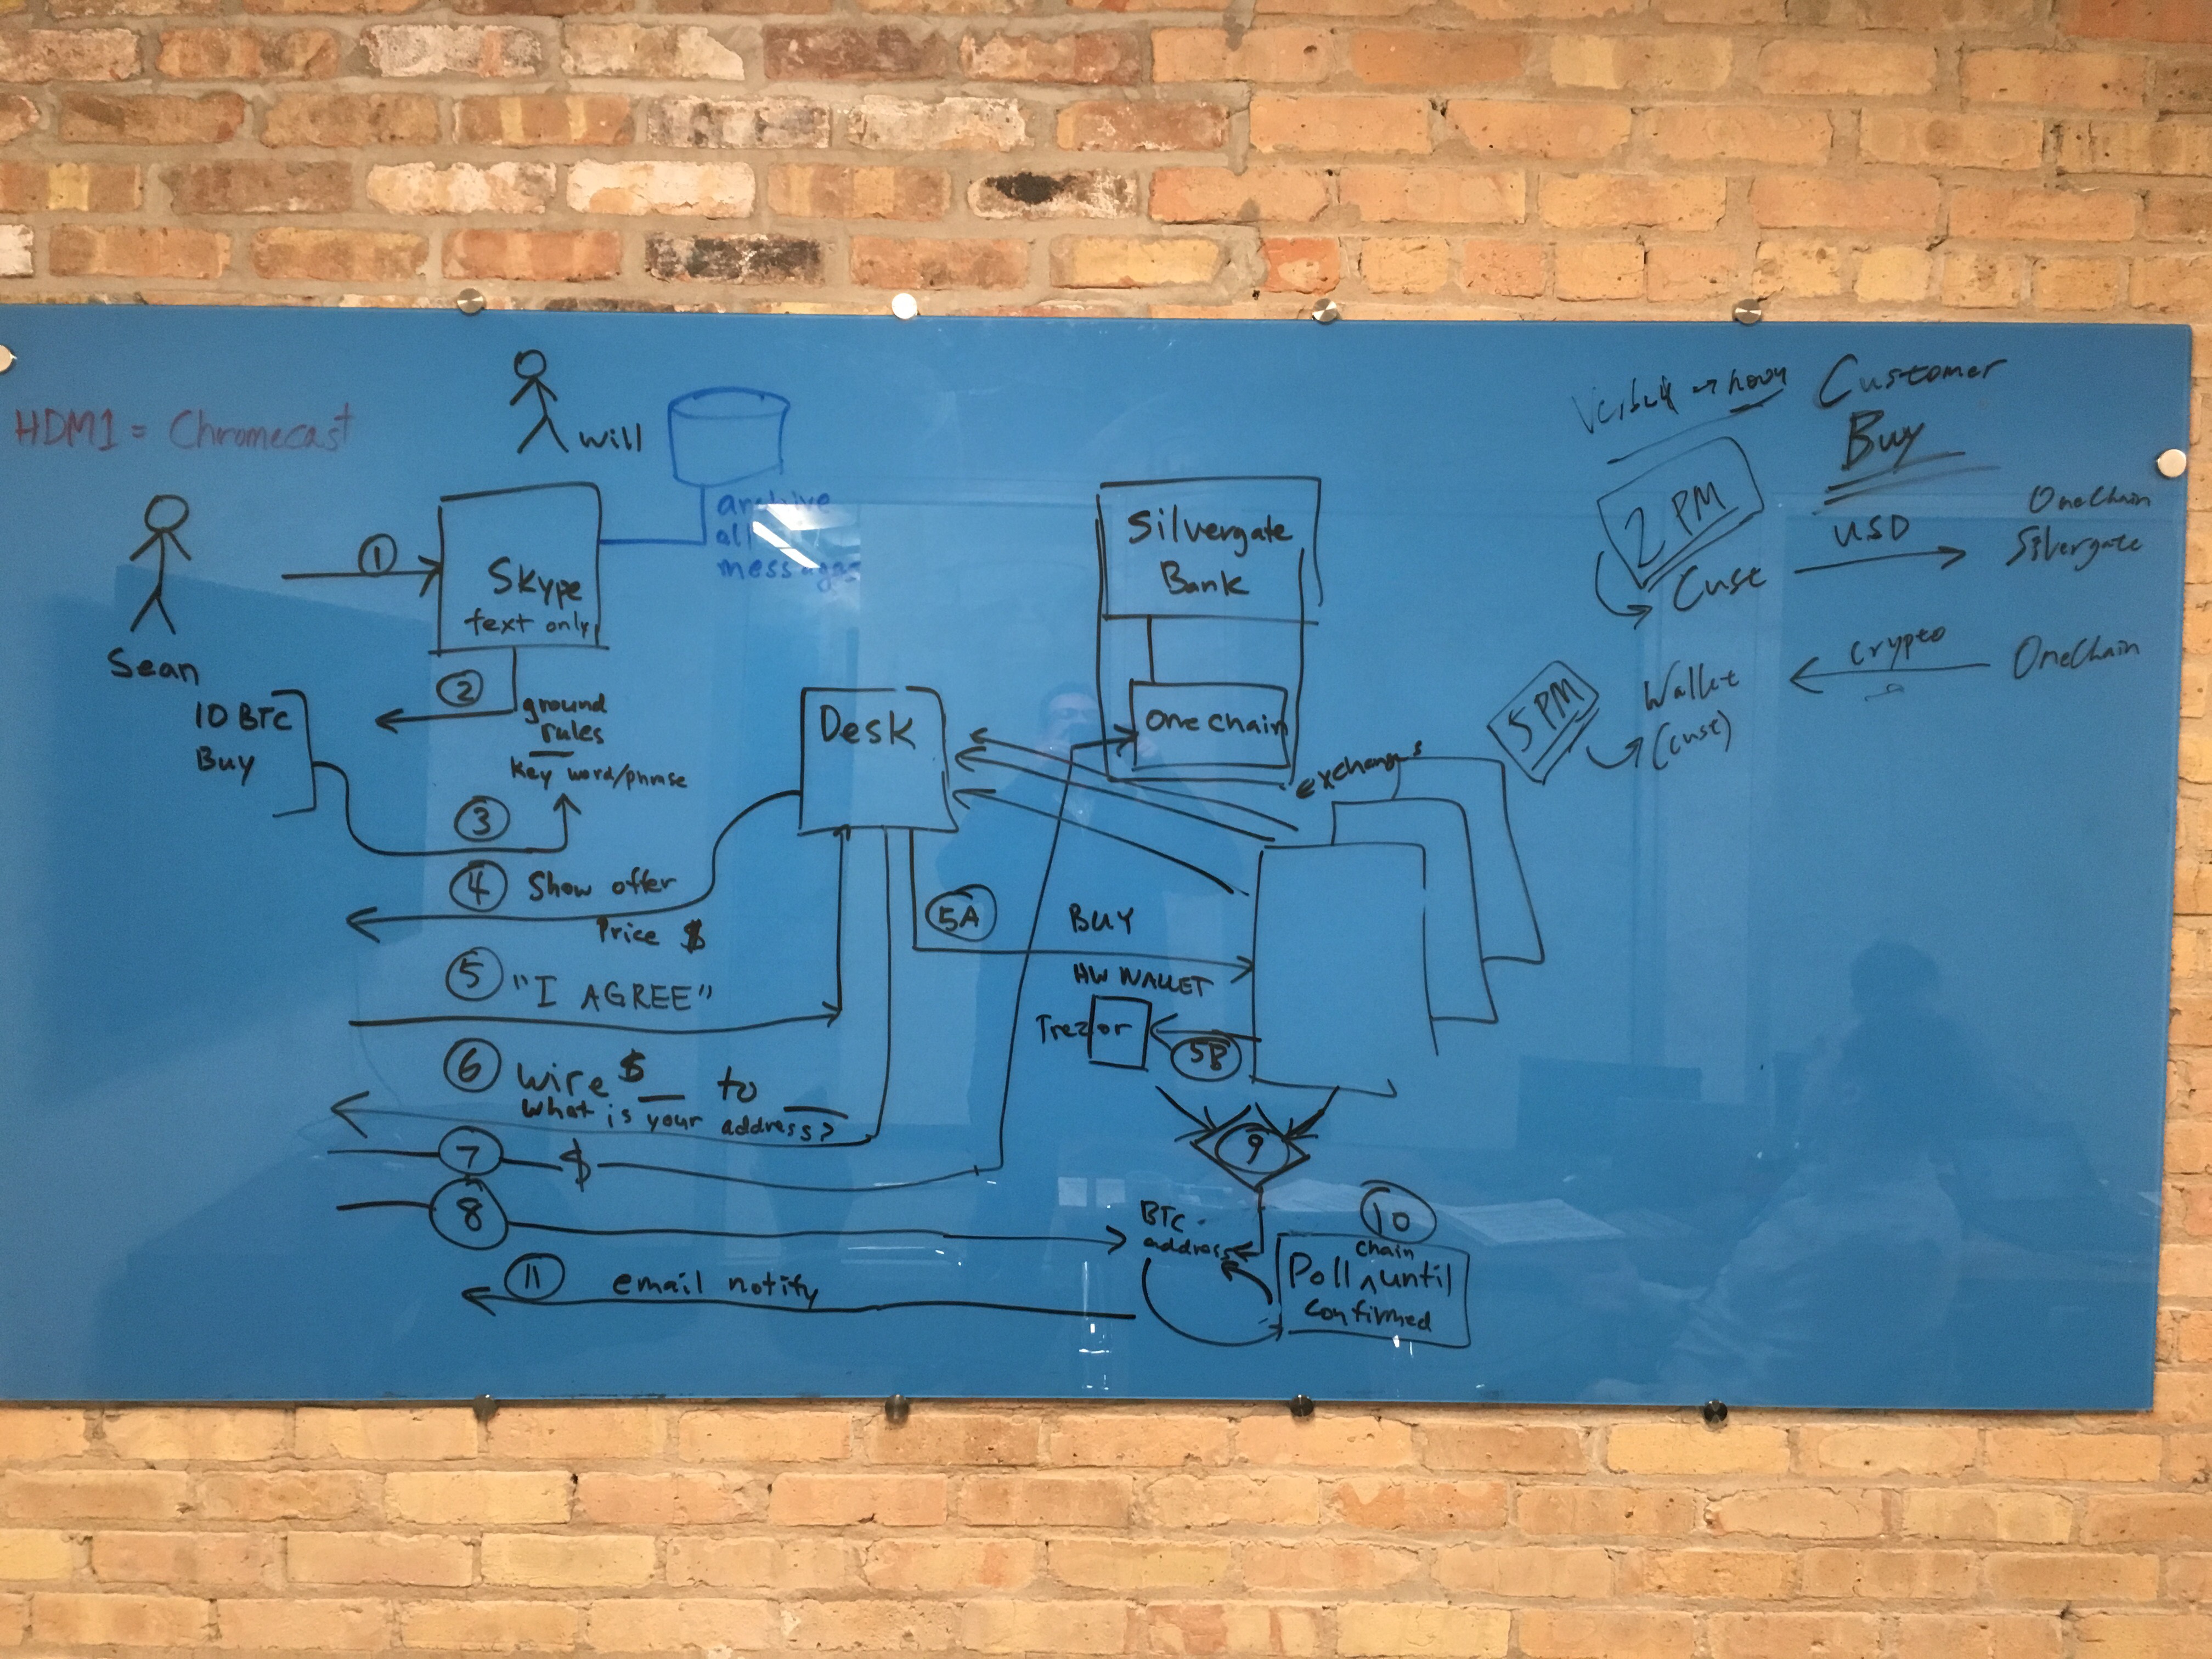 HDM1 = Chromecast
Will
archive
all
messages
Sean
10 BTC
Buy
1
Skype
text only
2
ground
rules
key word/phrase
3
4 Show offer
Price $
5 "I AGREE"
6 Wire $ __ to __
What is your address?
7 $
8
11 email notify
Desk
Silvergate
Bank
One chain
exchanges
5A BUY
HW WALLET
Trezor
5B
9
BTC
address
10
chain
Poll ^ until
confirmed
Customer
Buy
2 PM
Cust
USD
OneChain
Silvergate
5 PM
Wallet
(cust)
Crypto
OneChain